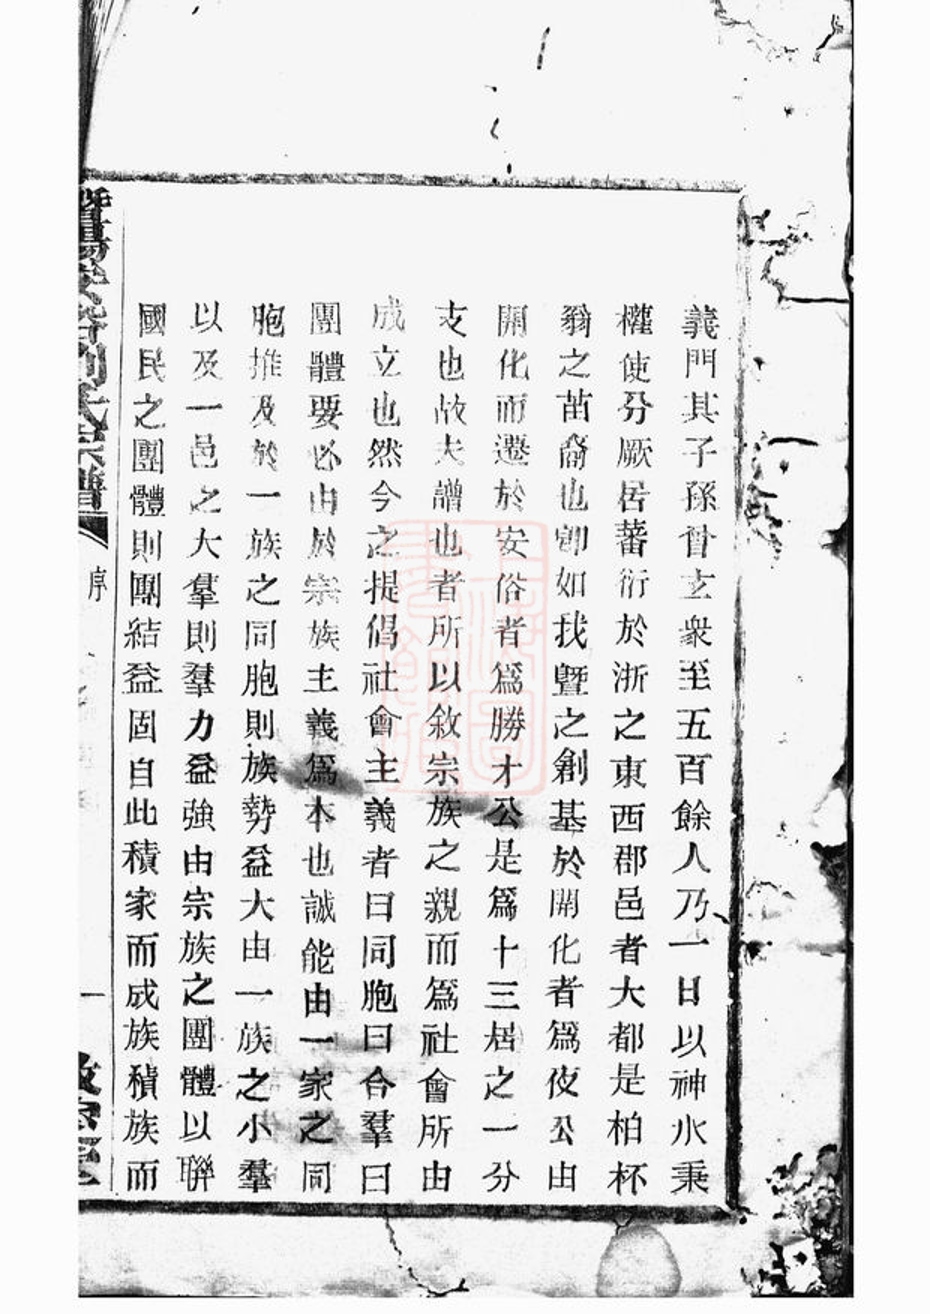 義門其子孫曾玄衆至五百餘人乃一日以神水秉
權使分厥居蕃衍於浙之東西郡邑者大都是柏杯
翁之苗裔也卽如我曁之創基於開化者爲夜公由
開化而遷於安俗者爲勝才公是爲十三居之一分
支也故夫譜也者所以敘宗族之親而爲社會所由
成立也然今之提倡社會主義者曰同胞曰合羣曰
團體要必由於宗族主義爲本也誠能由一家之同
胞推及於一族之同胞則族勢益大由一族之小羣
以及一邑之大羣則羣力益強由宗族之團體以聯
國民之團體則團結益固自此積家而成族積族而
暨陽安俗劉氏宗譜
序
一